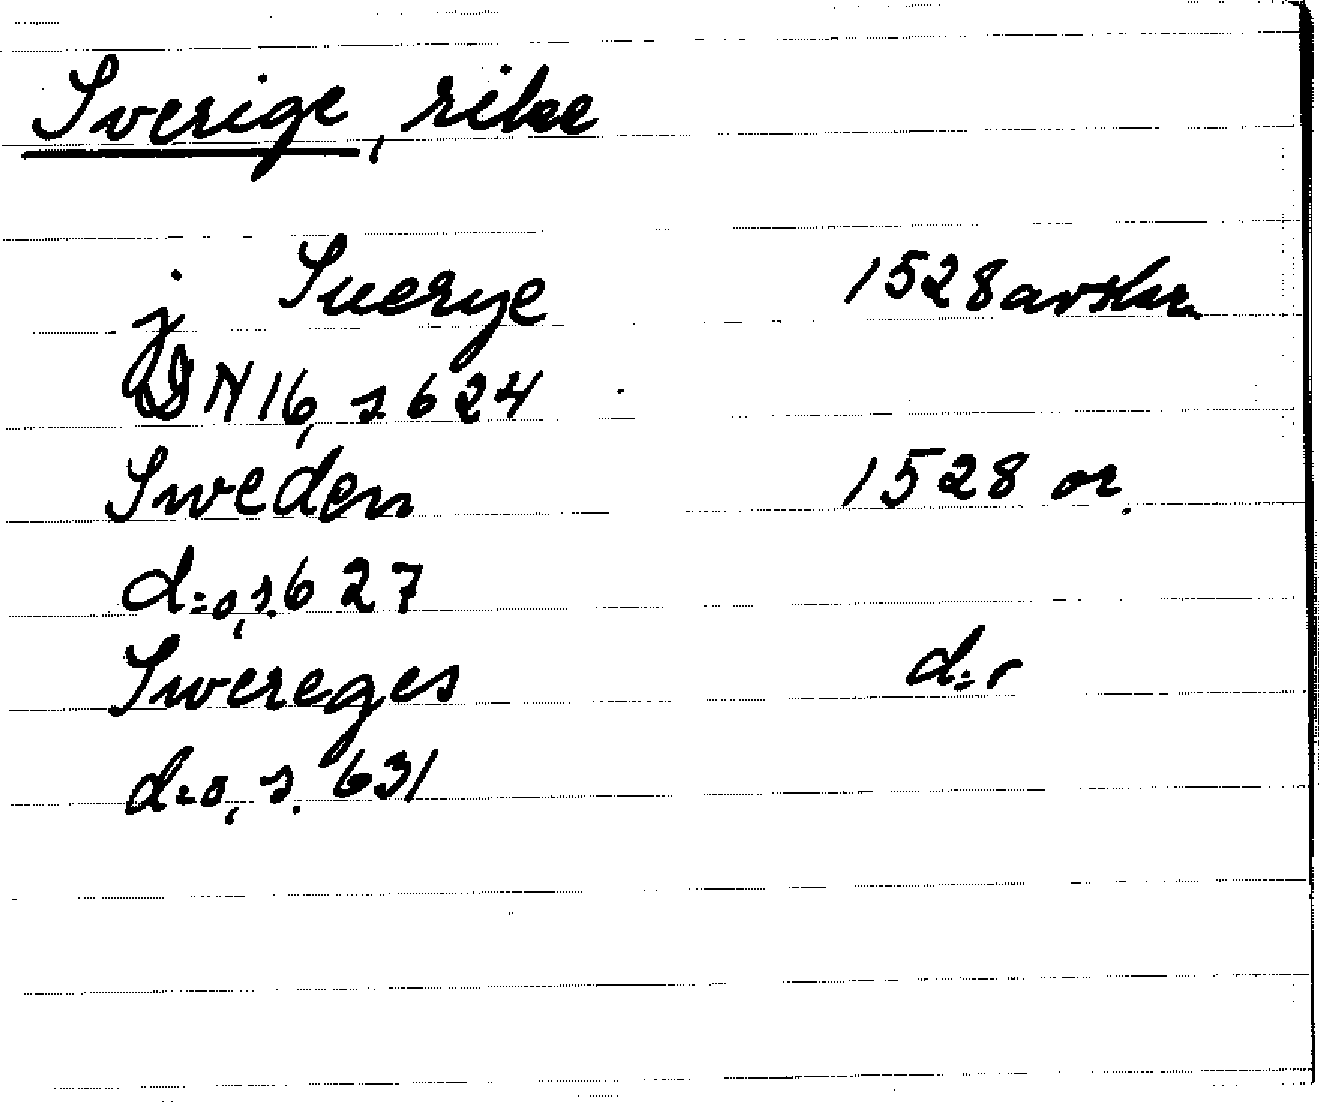 Sverige, rike
j Suerye 1528 avskr.
DN 16, s. 624
Sweden 1528 or.
d:o, s. 627
Swereges d:o
d:o, s. 631